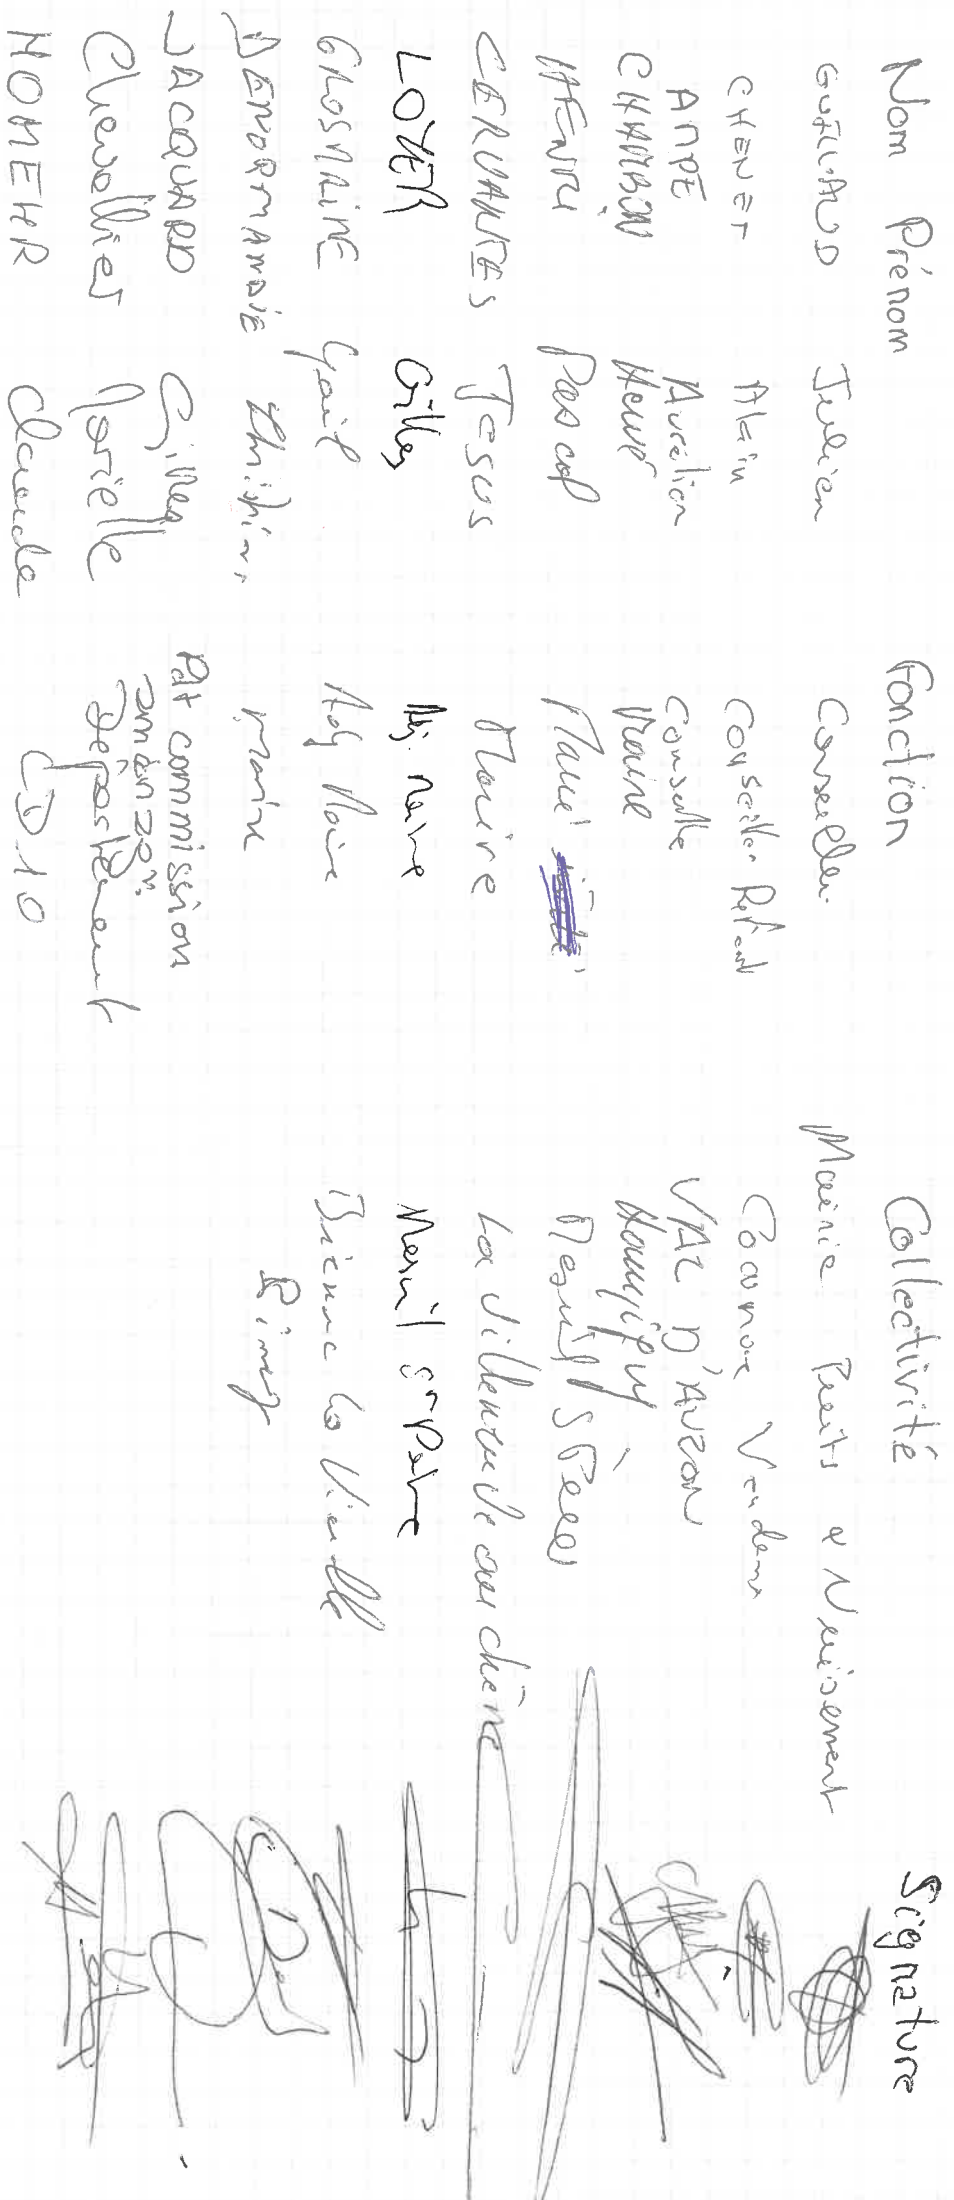 Nom Prénom Fonction Collectivité Signature
Julien Conseiller Mairie Puits & Nuisement
CHENET Alain Conseiller Commune Vendeuvre
AMPE Aurélien Conseiller VAL D'AUZON
CHAMBON Hervé Maire
HENRI Pascal Maire Mesnil S Peres
CERVANTES JESUS Maire La Villeneuve au chêne
LOYER Gilles Adj. maire Mesnil St Père
Adj Maire Brienne la Vieille
DENORMANDIE Maire Piney
JACQUARD Gilles Pdt commission
Chevallier Marielle Département
HOMEHR Claude CD10